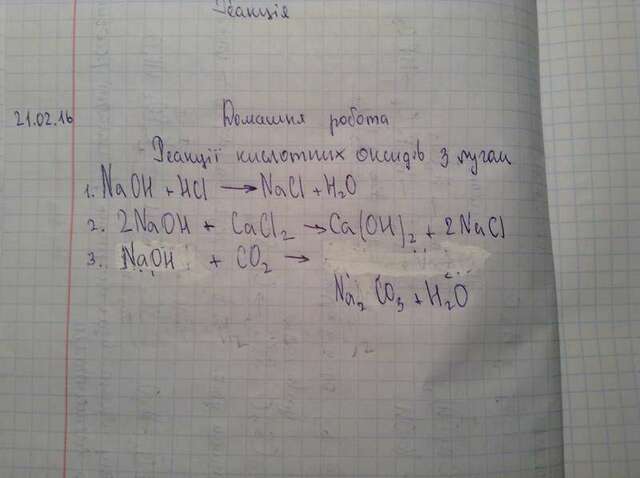 Реакція
21.02.16 Домашня робота
Реакції кислотних оксидів з лугам
1. NaOH + HCl → NaCl + H₂O
2. 2NaOH + CaCl₂ → Ca(OH)₂ + 2NaCl
3. NaOH + CO₂ →
Na₂CO₃ + H₂O